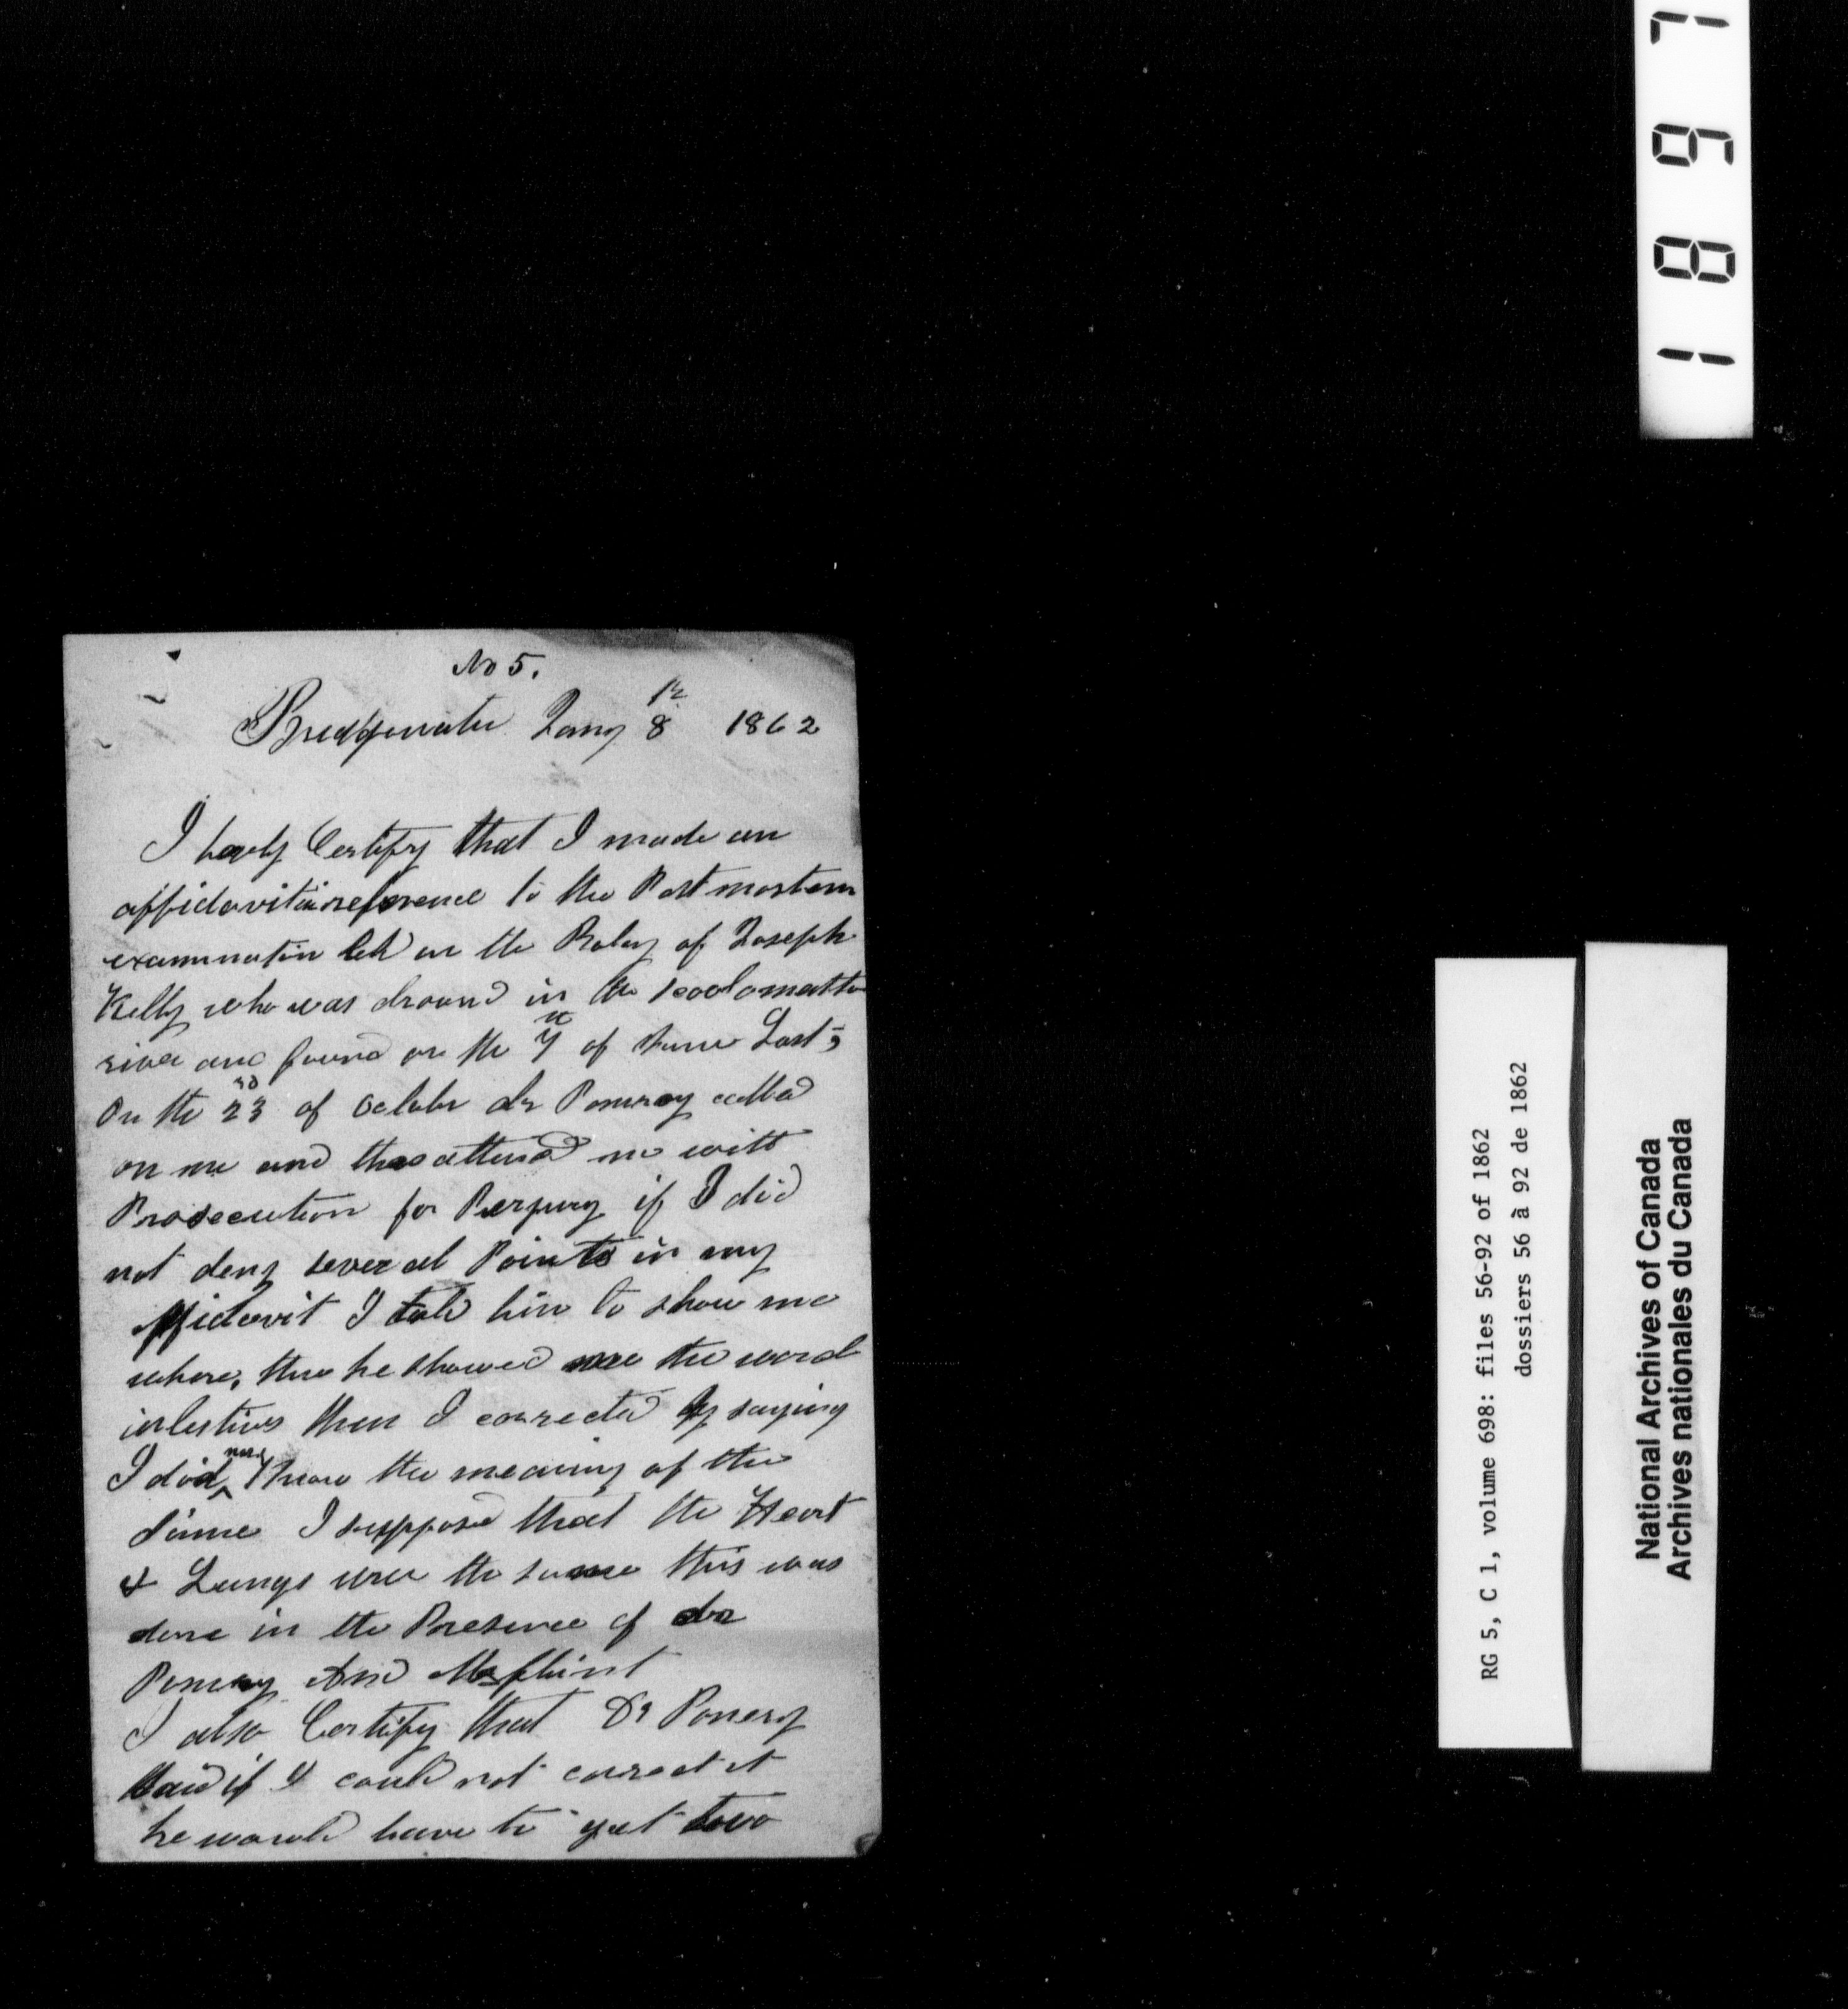 No 5.
Bridgewater Jany 8th 1862
I herby Certify that I made an
affidavit in reference to the Post mortem
examination held on the Body of Joseph
Kelly who was dround in the scootomatto
river and found on the 7th of June Last,
On the 23rd of October dr Pomroy called
on me and threattened me with
Prosecution for Perjury if I did
not deny several Points in my
affidavit I told him to show me
where, then he showed me the word
intestives then I corrected by saying
I did not Know the meaning of the
same I suppose that the Heart
& Lungs were the same this was
done in the Presence of dr
Pomroy And Mr flint
I also Certify that Dr Pomroy
Said if I could not correct it
he would have to get two
1897
RG 5, C 1, volume 698: files 56-92 of 1862
dossiers 56 à 92 de 1862
National Archives of Canada
Archives nationales du Canada